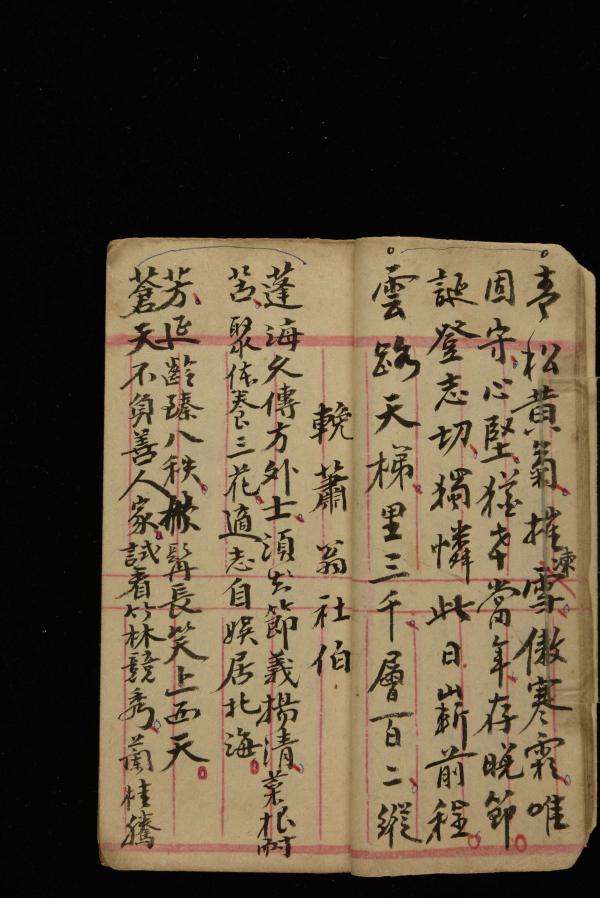 青松黄菊摧凍雪傲寒霜唯
固守心堅猶幸當年存晚節
誕登志切獨憐此日嶄前程
雲路天梯里三千層百二縱
輓蕭翁社伯
蓬海久傳方外士須知節義揚清菜根耐
苦聚侏養三花適志自娛居北海
芳延齡臻八秩掀髯長笑上西天
蒼天不負善人家試看竹林競秀蘭桂騰